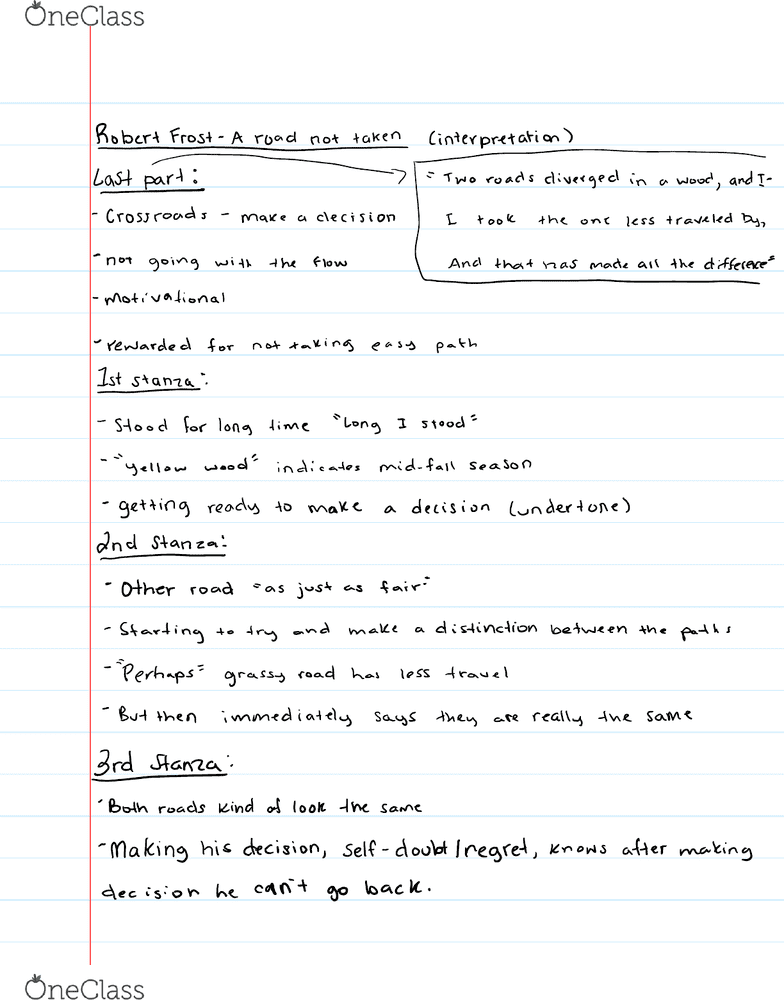 OneClass
Robert Frost - A road not taken (interpretation)
Last part:
"Two roads diverged in a wood, and I-
- Crossroads - make a decision
I took the one less traveled by,
- not going with the flow
And that has made all the difference"
- Motivational
- rewarded for not taking easy path
1st stanza:
- Stood for long time "Long I stood"
- "yellow wood" indicates mid-fall season
- getting ready to make a decision (undertone)
2nd Stanza:
- Other road "as just as fair"
- Starting to try and make a distinction between the paths
- "Perhaps" grassy road has less travel
- But then immediately says they are really the same
3rd Stanza:
- Both roads kind of look the same
- Making his decision, self-doubt/regret, knows after making
decision he can't go back.
OneClass